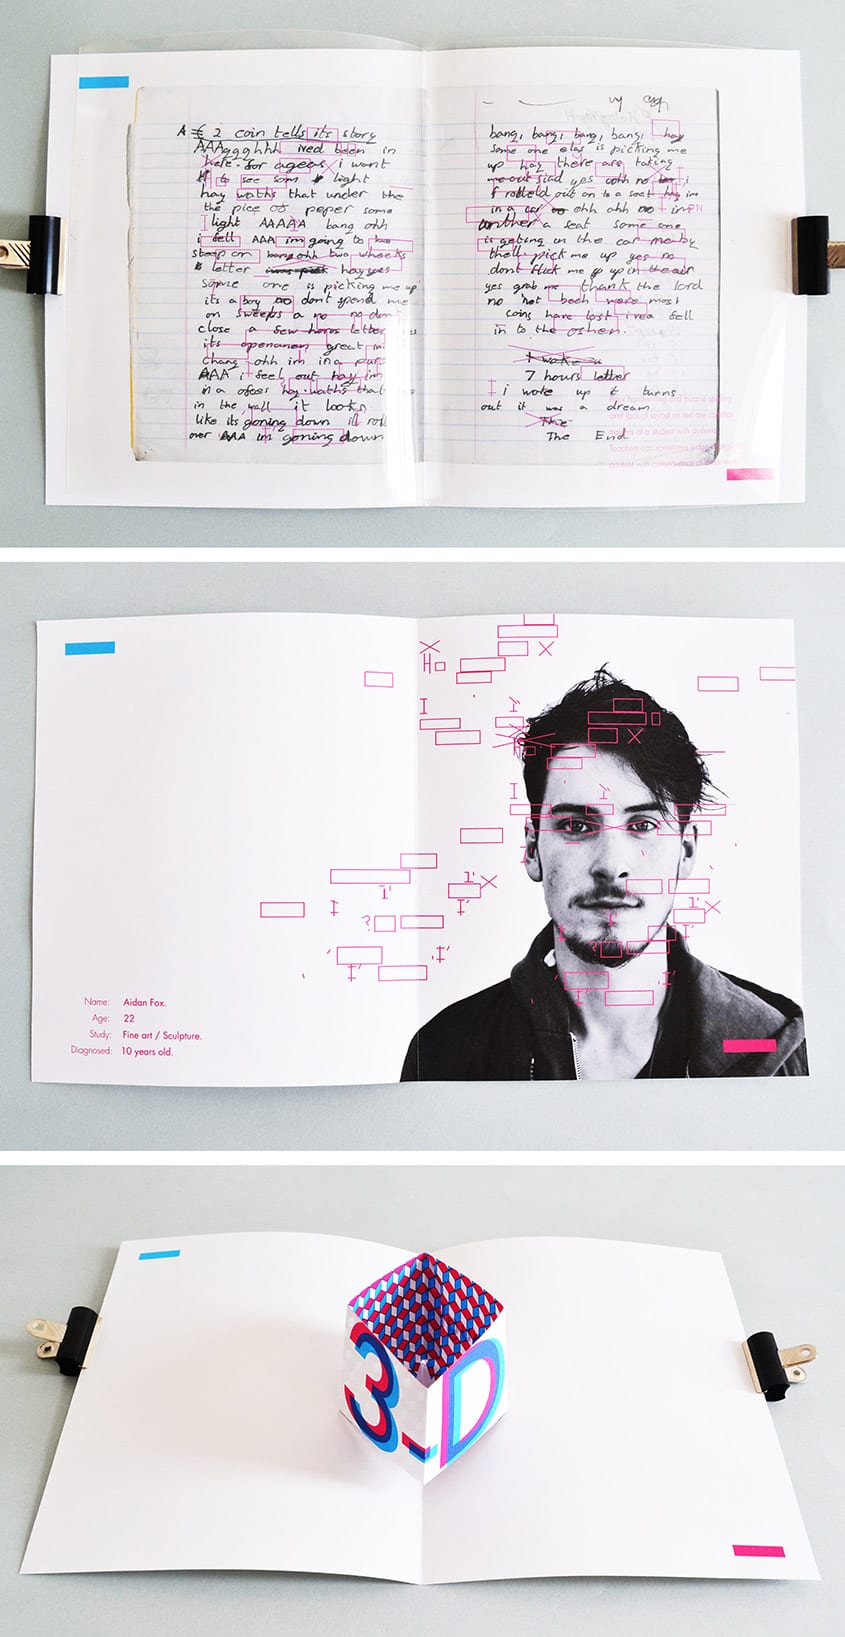 A € 2 coin tells its story
AAAggghhh ived been in
here. for ageas i want
to see som light
hay waths that under the
the pice of peper some
light AAAAA bang ohh
i fell AAA im going to
steep on bang ohh two wheeks
letter hay yes
some one is picking me up
its a boy no dont spend me
on sweeps a no no dont
close a few hors letter
its openanen great im
chang ohh im in a purs
AAA i feel out hay im
in a ofees hay. waths that
in the wall it looks
like its goning down ill roll
over AAA im goning down
bang, bang, bang, bang, hay
some one elas is picking me
up hay there are taking
me out siad yes oohh no i
f rolleld out on to a seat hay im
in a car no ohh ohh no im
anther a seat some one
is geting in the car me by
thell pick me up yes no
dont flick me up up in the air
yes grab me thank the lord
no not beeh were most
coins have lost irea fell
in to the oshen.
I woke u
7 hours letter
i woke up it turns
out it was a dream
The
The End
handwriting and bizarre spelling
and lack of layout on text are common
of a student with dyslexia
Teachers can sometimes
Ho
Name: Aidan Fox.
Age: 22
Study: Fine art / Sculpture.
Diagnosed: 10 years old.
3-D